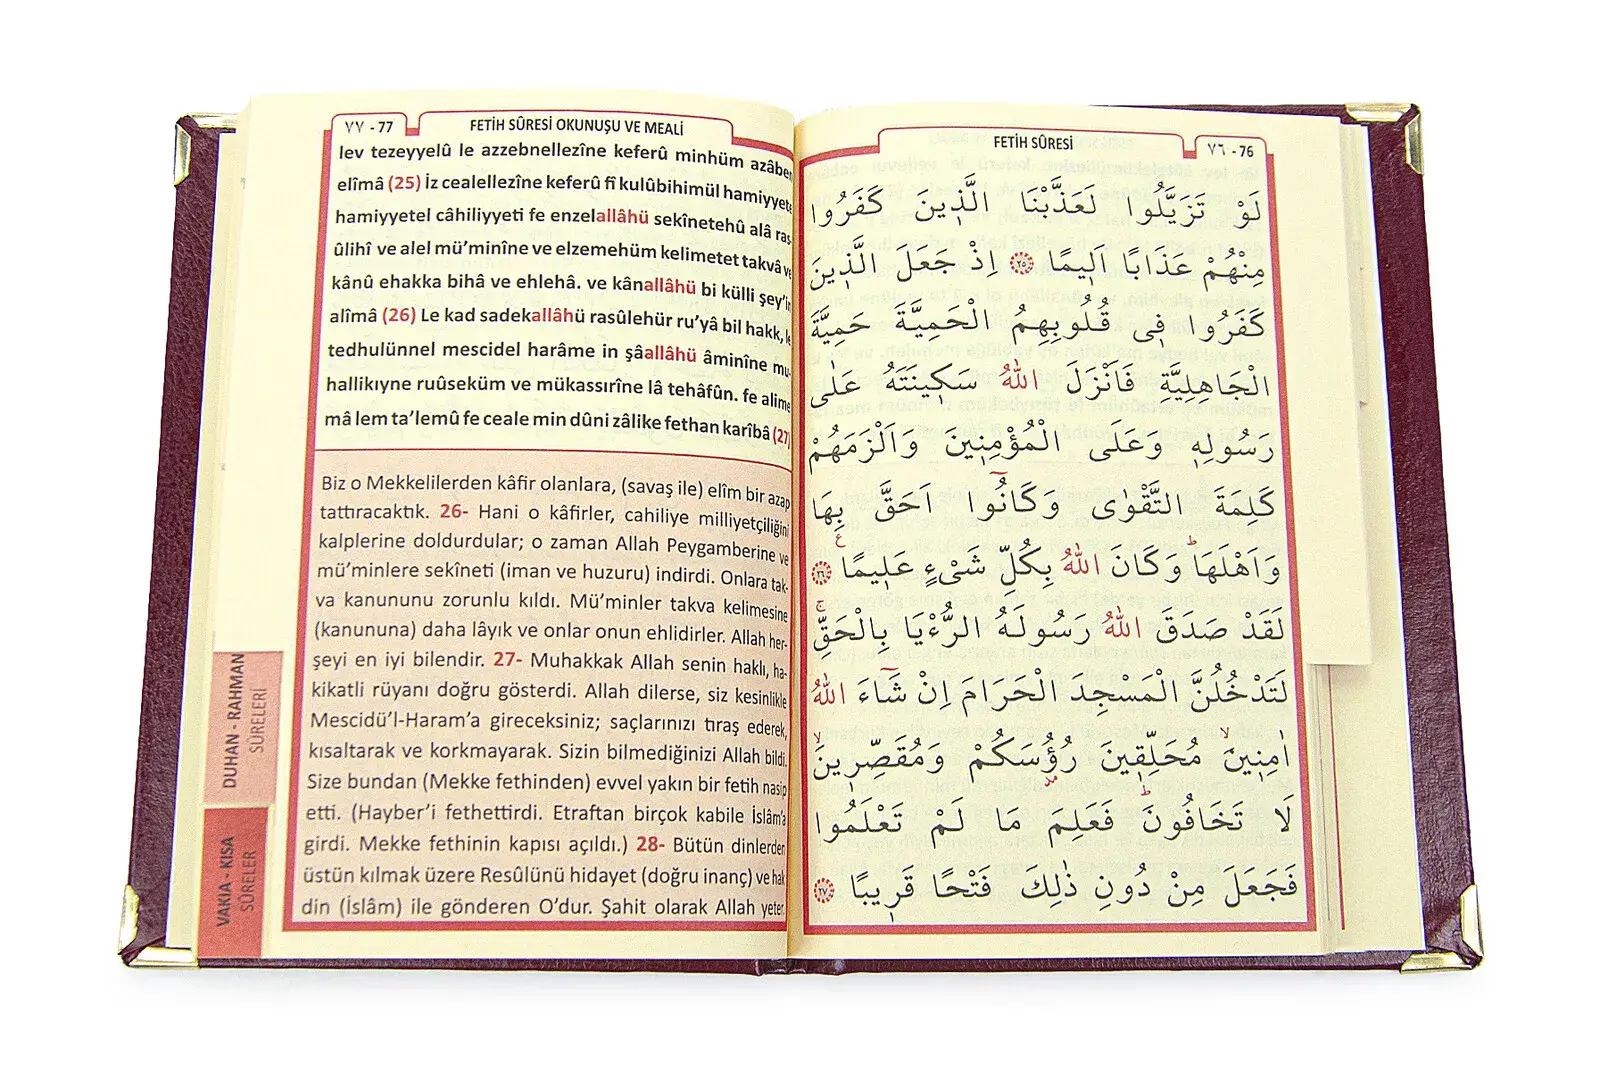 ٧٧ - 77
FETİH SÛRESİ OKUNUŞU VE MEALİ
lev tezeyyelû le azzebnellezîne keferû minhüm azâben
elîmâ (25) İz cealellezîne keferû fî kulûbihimül hamiyyete
hamiyyetel câhiliyyeti fe enzelallâhü sekînetehû alâ ras
ûlihî ve alel mü'minîne ve elzemehüm kelimetet takvâ ve
kânû ehakka bihâ ve ehlehâ. ve kânallâhü bi külli şey'in
alîmâ (26) Le kad sadekallâhü rasûlehür ru'yâ bil hakk, le
tedhulünnel mescidel harâme in şâallâhü âminîne mu-
hallikıyne ruûseküm ve mükassırîne lâ tehâfûn. fe alime
mâ lem ta'lemû fe ceale min dûni zâlike fethan karîbâ (27)
Biz o Mekkelilerden kâfir olanlara, (savaş ile) elîm bir azap
tattıracaktık. 26- Hani o kâfirler, cahiliye milliyetçiliğini
kalplerine doldurdular; o zaman Allah Peygamberine ve
mü'minlere sekîneti (iman ve huzuru) indirdi. Onlara tak-
va kanununu zorunlu kıldı. Mü'minler takva kelimesine
(kanununa) daha lâyık ve onlar onun ehlidirler. Allah her-
şeyi en iyi bilendir. 27- Muhakkak Allah senin haklı, ha-
kikatli rüyanı doğru gösterdi. Allah dilerse, siz kesinlikle
Mescidü'l-Haram'a gireceksiniz; saçlarınızı tıraş ederek,
kısaltarak ve korkmayarak. Sizin bilmediğinizi Allah bildi.
Size bundan (Mekke fethinden) evvel yakın bir fetih nasip
etti. (Hayber'i fethettirdi. Etraftan birçok kabile İslâm'a
girdi. Mekke fethinin kapısı açıldı.) 28- Bütün dinlerden
üstün kılmak üzere Resûlünü hidayet (doğru inanç) ve hak
din (İslâm) ile gönderen O'dur. Şahit olarak Allah yeter.
DUHAN - RAHMAN
SÛRELERİ
VAKIA - KISA
SÛRELER
FETİH SÛRESİ
٧٦ - 76
لَوْ تَزَيَّلُوا لَعَذَّبْنَا الَّذ۪ينَ كَفَرُوا
مِنْهُمْ عَذَابًا اَل۪يمًا ٢٥ اِذْ جَعَلَ الَّذ۪ينَ
كَفَرُوا ف۪ى قُلُوبِهِمُ الْحَمِيَّةَ حَمِيَّةَ
الْجَاهِلِيَّةِ فَاَنْزَلَ اللّٰهُ سَك۪ينَتَهُ عَلٰى
رَسُولِه۪ وَعَلَى الْمُؤْمِن۪ينَ وَاَلْزَمَهُمْ
كَلِمَةَ التَّقْوٰى وَكَانُٓوا اَحَقَّ بِهَا
وَاَهْلَهَاۜ وَكَانَ اللّٰهُ بِكُلِّ شَىْءٍ عَل۪يمًا ٢٦
لَقَدْ صَدَقَ اللّٰهُ رَسُولَهُ الرُّءْيَا بِالْحَقِّۚ
لَتَدْخُلُنَّ الْمَسْجِدَ الْحَرَامَ اِنْ شَٓاءَ اللّٰهُ
اٰمِن۪ينَۙ مُحَلِّق۪ينَ رُؤُسَكُمْ وَمُقَصِّر۪ينَۙ
لَا تَخَافُونَۜ فَعَلِمَ مَا لَمْ تَعْلَمُوا
فَجَعَلَ مِنْ دُونِ ذٰلِكَ فَتْحًا قَر۪يبًا ٢٧